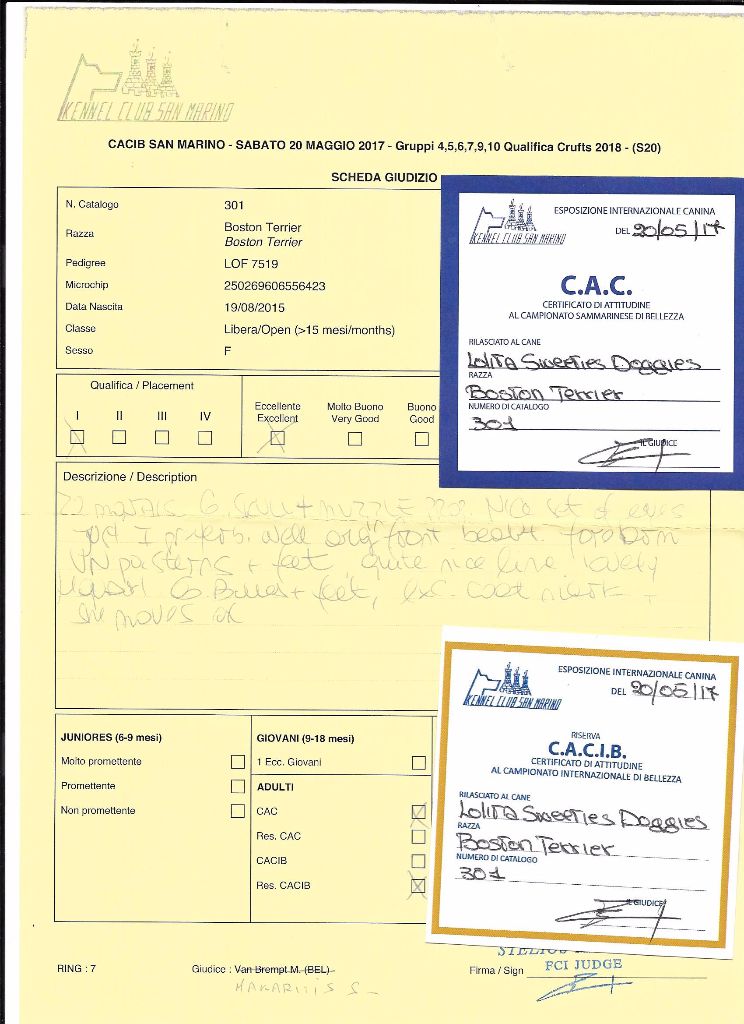 KENNEL CLUB SAN MARINO
CACIB SAN MARINO - SABATO 20 MAGGIO 2017 - Gruppi 4,5,6,7,9,10 Qualifica Crufts 2018 - (S20)
SCHEDA GIUDIZIO
N. Catalogo 301
Razza Boston Terrier
Boston Terrier
Pedigree LOF 7519
Microchip 250269606556423
Data Nascita 19/08/2015
Classe Libera/Open (>15 mesi/months)
Sesso F
KENNEL CLUB SAN MARINO
ESPOSIZIONE INTERNAZIONALE CANINA
DEL 20/05/17
C.A.C.
CERTIFICATO DI ATTITUDINE
AL CAMPIONATO SAMMARINESE DI BELLEZZA
RILASCIATO AL CANE
Lolita Sweeties Doggies
RAZZA
Boston Terrier
NUMERO DI CATALOGO
301
IL GIUDICE
Qualifica / Placement
I II III IV
Eccellente Molto Buono Buono
Excellent Very Good Good
Descrizione / Description
22 months G. Skull + muzzle Nice set of eyes
I front
pasterns + feet, quite nice line lovely
G. + feet, exc. coat
she moves ok
KENNEL CLUB SAN MARINO
ESPOSIZIONE INTERNAZIONALE CANINA
DEL 20/05/17
RISERVA
C.A.C.I.B.
CERTIFICATO DI ATTITUDINE
AL CAMPIONATO INTERNAZIONALE DI BELLEZZA
RILASCIATO AL CANE
Lolita Sweeties Doggies
RAZZA
Boston Terrier
NUMERO DI CATALOGO
301
IL GIUDICE
JUNIORES (6-9 mesi)
Molto promettente
Promettente
Non promettente
GIOVANI (9-18 mesi)
1 Ecc. Giovani
ADULTI
CAC
Res. CAC
CACIB
Res. CACIB
RING : 7
Giudice : Van Brempt M. (BEL)
MAKARITIS S
Firma / Sign
STELIOS
FCI JUDGE